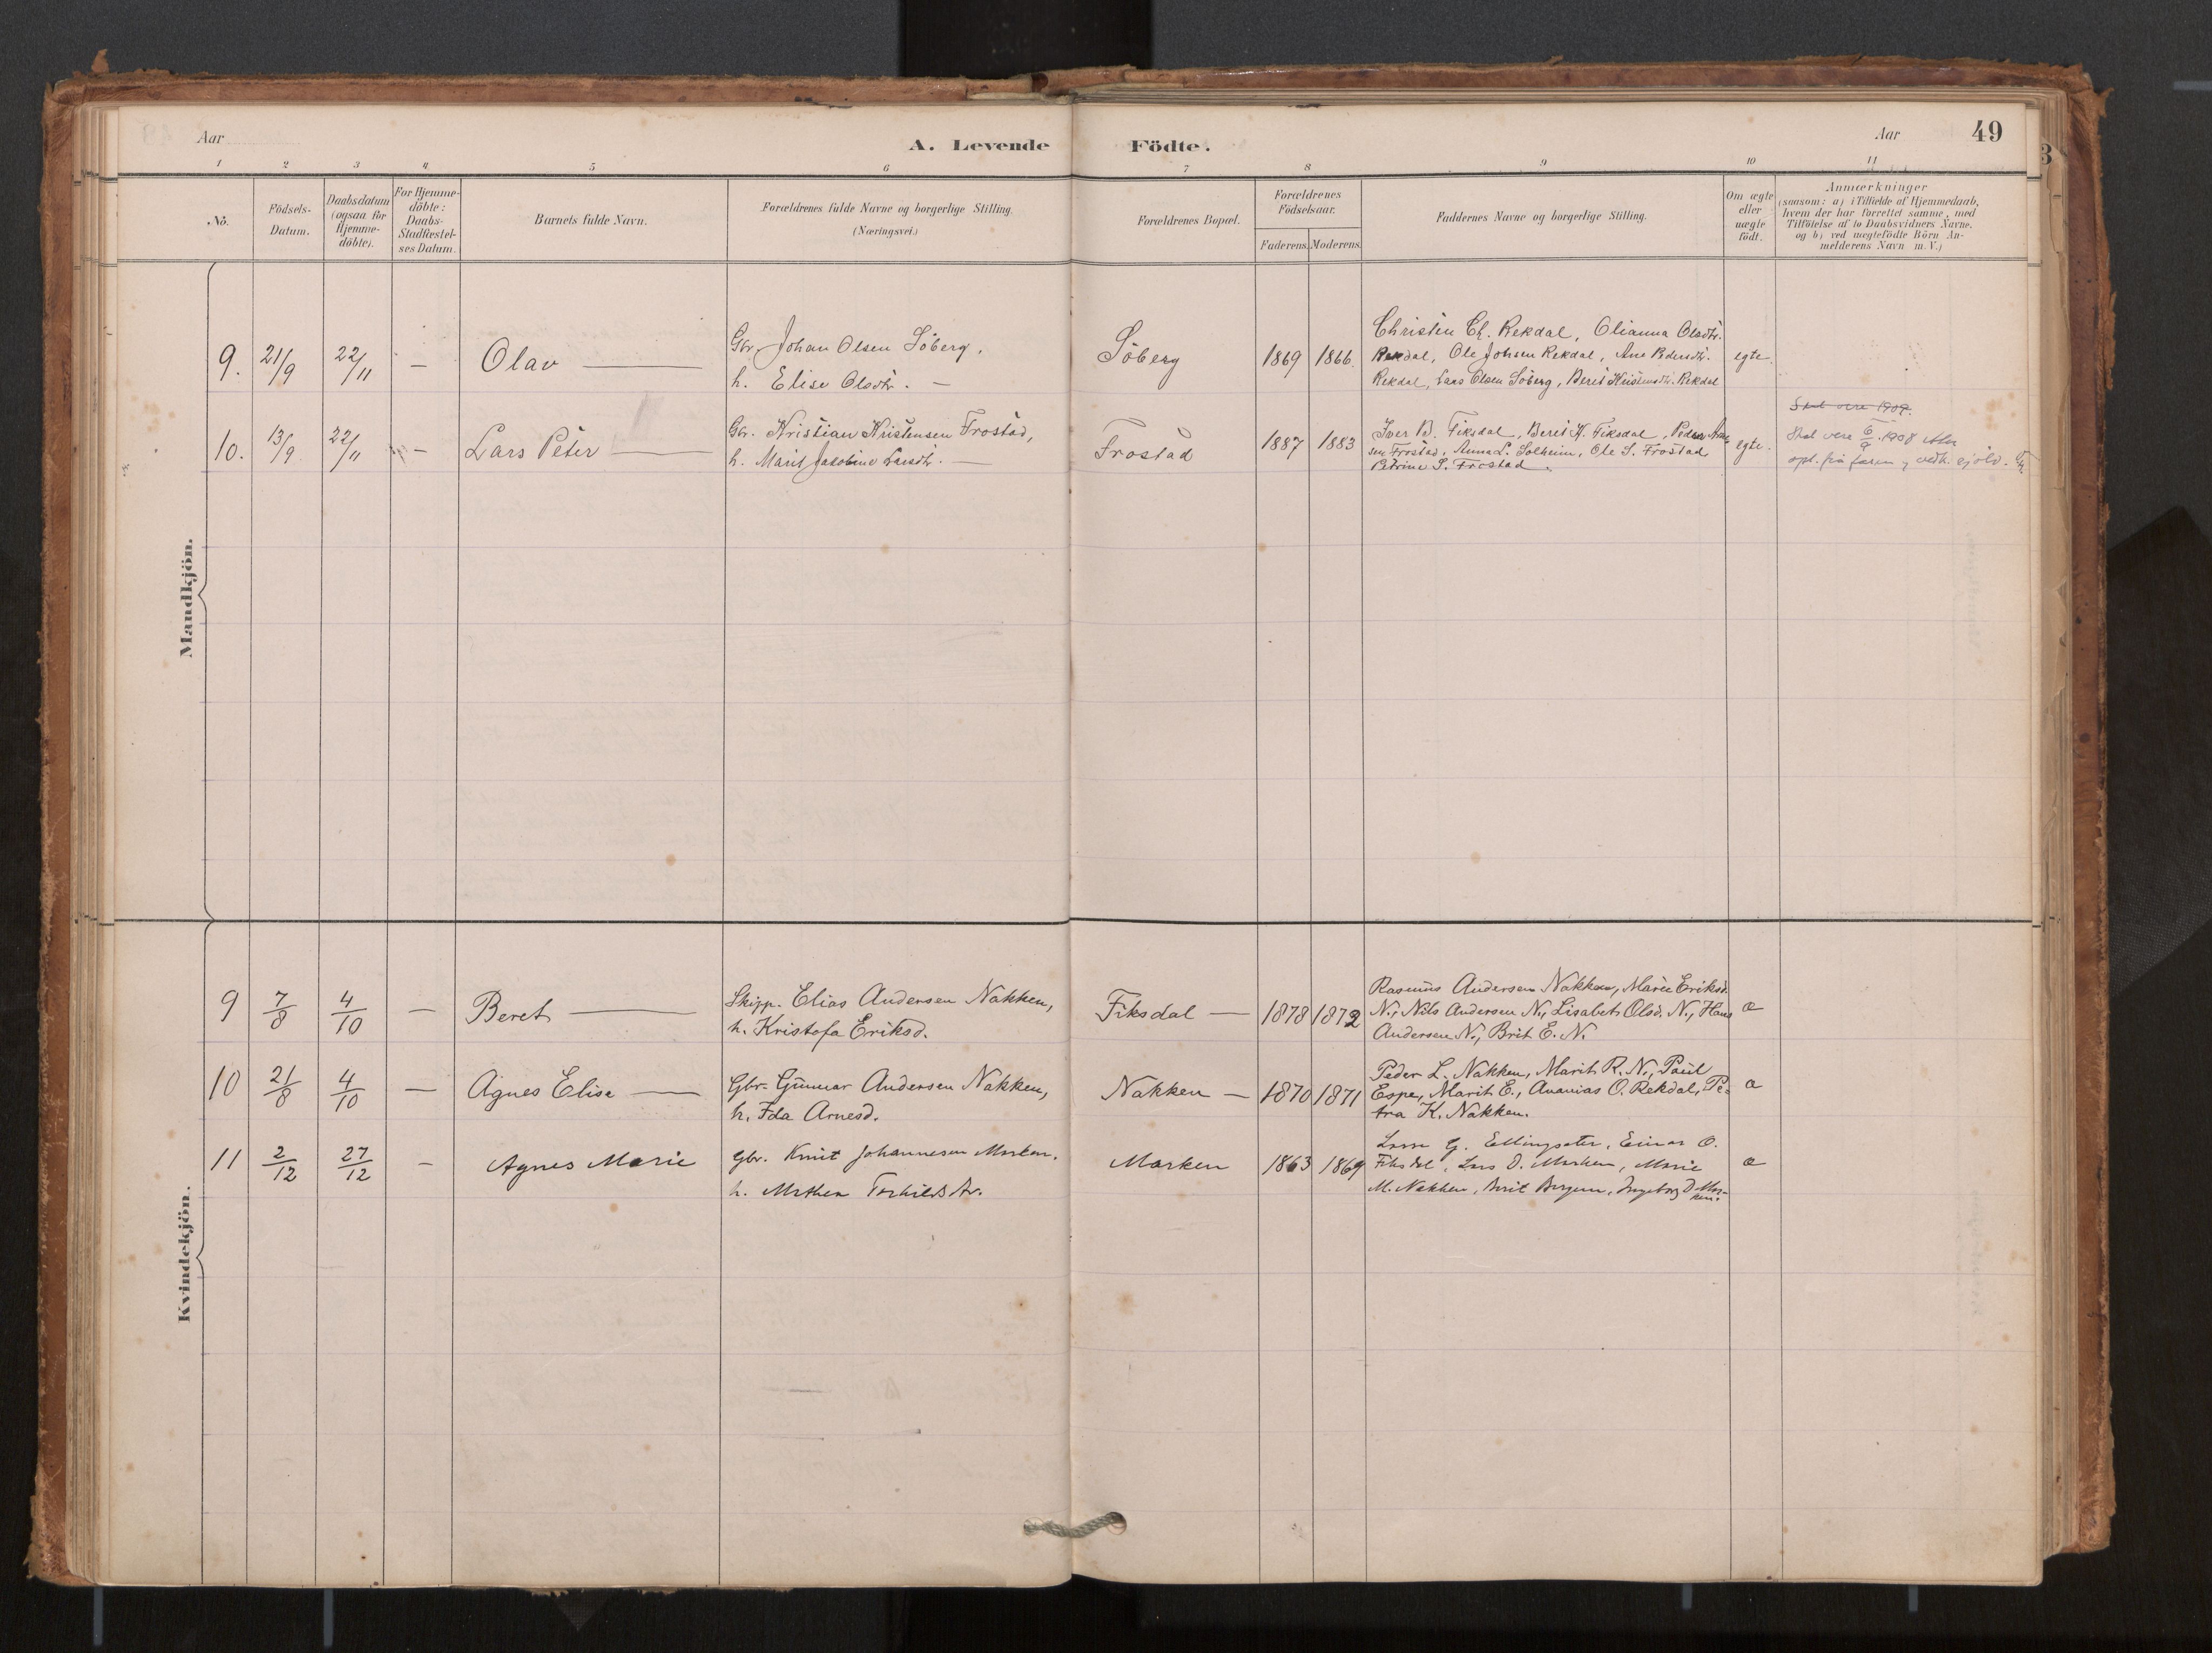 Aar
A. Levende Födte.
Aar
49
3
1 2 3 4 5 6 7 8 9 10 11
No.
Födsels-
Datum.
Daabsdatum
(ogsaa for
Hjemme-
döbte).
For Hjemme-
döbte:
Daabs-
Stadfæstel-
ses Datum.
Barnets fulde Navn.
Forældrenes fulde Navne og borgerlige Stilling.
(Næringsvei.)
Forældrenes Bopæl.
Forældrenes
Födselsaar.
Faderens. Moderens.
Faddernes Navne og borgerlige Stilling.
Om ægte
eller
uægte
födt.
Anmærkninger
(saasom: a) i Tilfælde af Hjemmedaab,
hvem der har forrettet samme, med
Tilföielse af to Daabsvidners Navne,
og b) ved uægtefödte Börn An-
melderens Navn m. V.)
Mandkjön.
9. 21/9 22/11 — Olav —
Gbr. Johan Olsen Söberg,
h. Elise Olsdtr. —
Söberg 1869 1866.
Christen Ch. Rekdal, Olianna Olsdtr.
Rekdal, Ole Johsen Rekdal, Ane Pedersdtr.
Rekdal, Lars Olsen Söberg, Berit Kristensdtr. Rekdal
egte.
10. 13/9 22/11 — Lars Peter —
Gbr. Kristian Kristensen Frostad,
h. Marit Jakobine Larsdtr. —
Frostad 1887 1883
Iver B. Fiksdal, Berit K. Fiksdal, Peder
sen Frostad, Anna L. Solheim, Ole S. Frostad
Petrine S. Frostad.
egte.
Skal vere 1909.
Skal vere 6/9 1908 etter
opl. frå faren
Kvindekjön.
9 7/8 4/10 — Beret —
Skipp. Elias Andersen Nakken,
h. Kristofa Eriksd.
Fiksdal — 1878 1872
Rasmus Andersen Nakken, Marie Eriksd.
N., Nils Andersen N., Lisabet Olsd. N., Hans
Andersen N., Brit E. N.
æ
10 21/8 4/10 — Agnes Elise —
Gbr. Gunnar Andersen Nakken,
h. Ida Arnesd.
Nakken — 1870 1871
Peder L. Nakken, Marit R. N., Paul
Espe, Marit E., Ananias O. Rekdal, Pe-
tra K. Nakken.
æ
11 2/12 27/12 — Agnes Marie
Gbr. Knut Johannesen Morken.
h. Mathea Torkildsdtr.
Morken 1863 1869
Lars G. Ellingsæter, Einar O.
Fiksdal, Lars D. Morken, Marie
M. Nakken, Berit Bergem, Ingeborg D. Mor-
ken.
æ